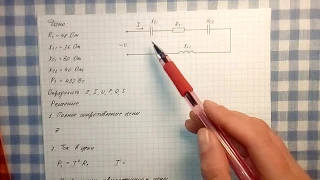 Дано
R₁ = 48 Ом
Xc₁ = 16 Ом
Xc₂ = 80 Ом
XL₁ = 40 Ом
P₁ = 432 Вт
Определить Z, I, U, P, Q, S
Решение
1. Полное сопротивление цепи
Z
2. Ток в цепи
P₁ = I² R₁ I =
I
Xc₁
R₁
Xc₂
~U
XL₁